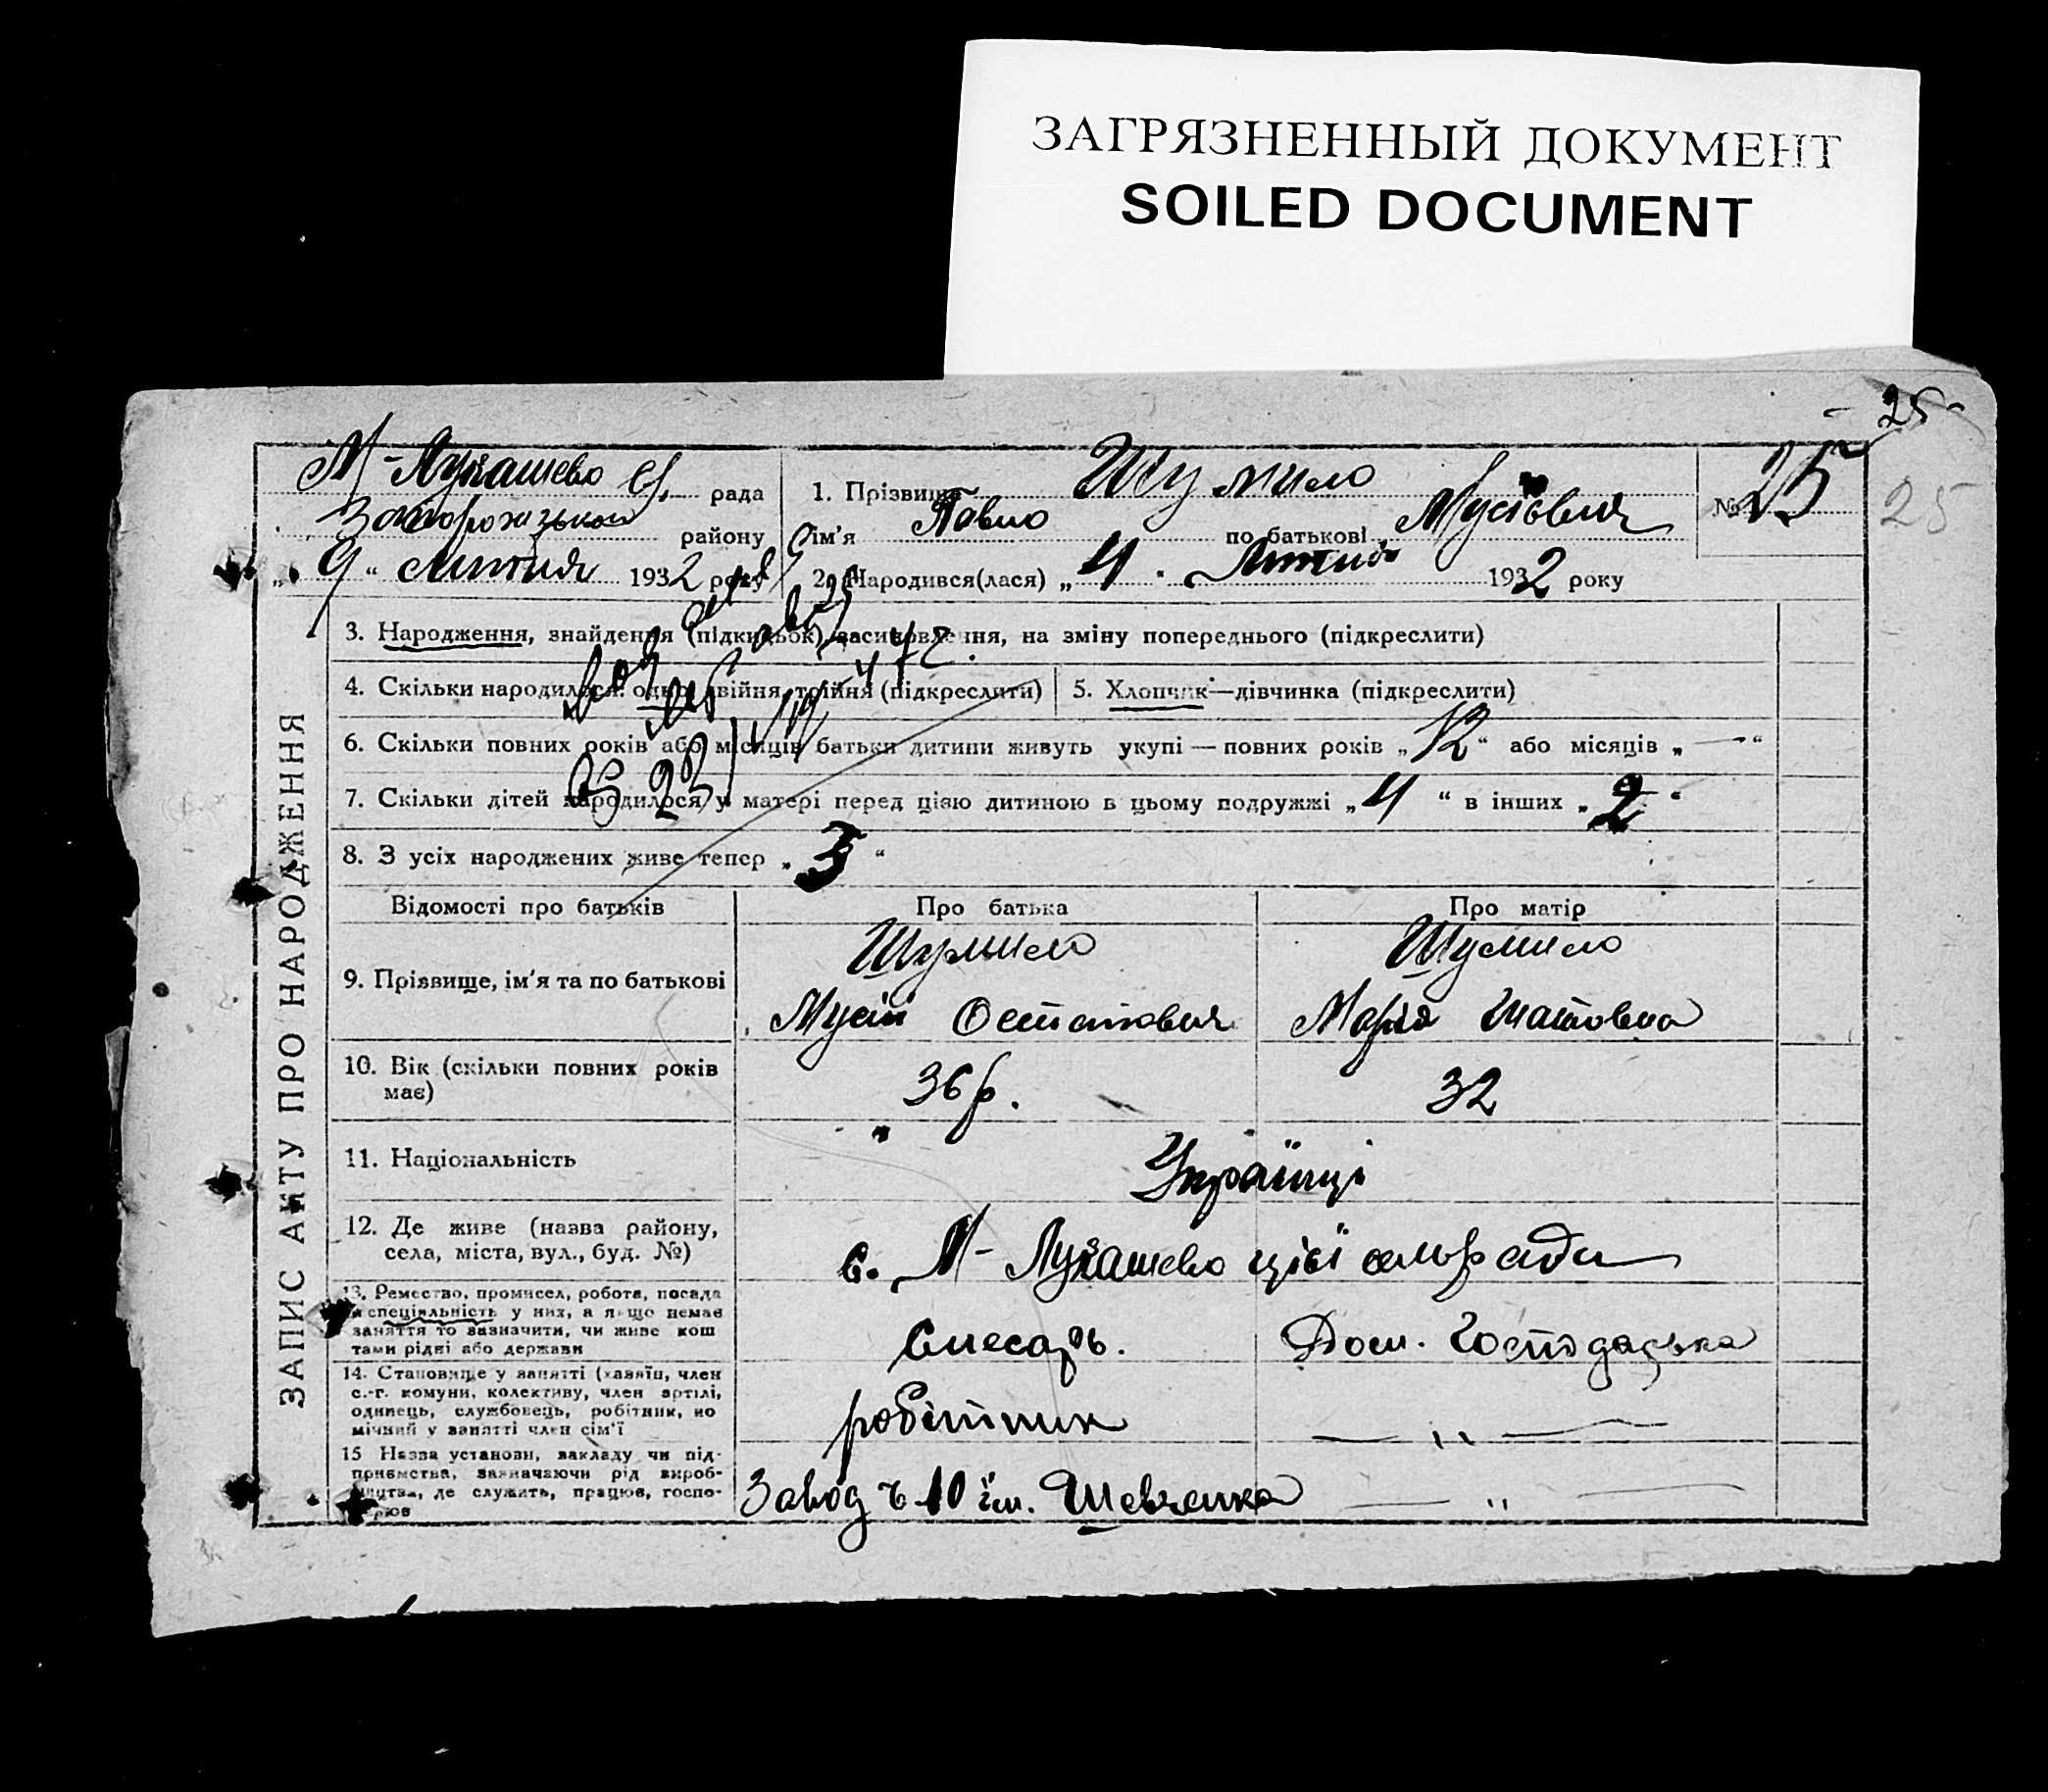 ЗАГРЯЗНЕННЫЙ ДОКУМЕНТ
SOILED DOCUMENT
- 25 -
25
М-Лукашево С. рада
Запорізького району
„ 9 “ лютня 1932 року
1. Прізвище Шумило
ім'я Павло по батькові Мусієвич
№ 25
2. Народився(лася) „ 4 “ Лютня 1932 року
ЗАПИС АКТУ ПРО НАРОДЖЕННЯ
3. Народження, знайдення (підкидьок), засиновлення, на зміну попереднього (підкреслити)
4. Скільки народилося: одно, двійня, трійня (підкреслити)
5. Хлопчик—дівчинка (підкреслити)
6. Скільки повних років або місяців батьки дитини живуть укупі — повних років „ 12 “ або місяців „ — “
7. Скільки дітей народилося у матері перед цією дитиною в цьому подружжі „ 4 “ в інших „ 2 “
8. З усіх народжених живе тепер „ 3 “
Відомості про батьків
Про батька
Про матір
9. Прізвище, ім'я та по батькові
Шумило
Мусій Остапович
Шумило
Марія
10. Вік (скільки повних років
має)
36 р.
32
11. Національність
Українці
12. Де живе (назва району,
села, міста, вул., буд. №)
с. М-Лукашево цієї сільради
13. Ремество, промисел, робота, посада
й спеціяльність у них, а якщо немає
заняття то зазначити, чи живе кош
тами рідні або держави
Слесарь.
Дом. Господарька
14. Становище у занятті (хазяїн, член
с.-г. комуни, колективу, член артілі,
одинець, службовець, робітник, по
мічний у занятті член сім'ї
робітник
— " —
15 Назва установи, закладу чи під-
приємства, зазначаючи рід вироб-
ництва, де служить, працює, госпо-
Завод ч 10 ім. Шевченка
— " —